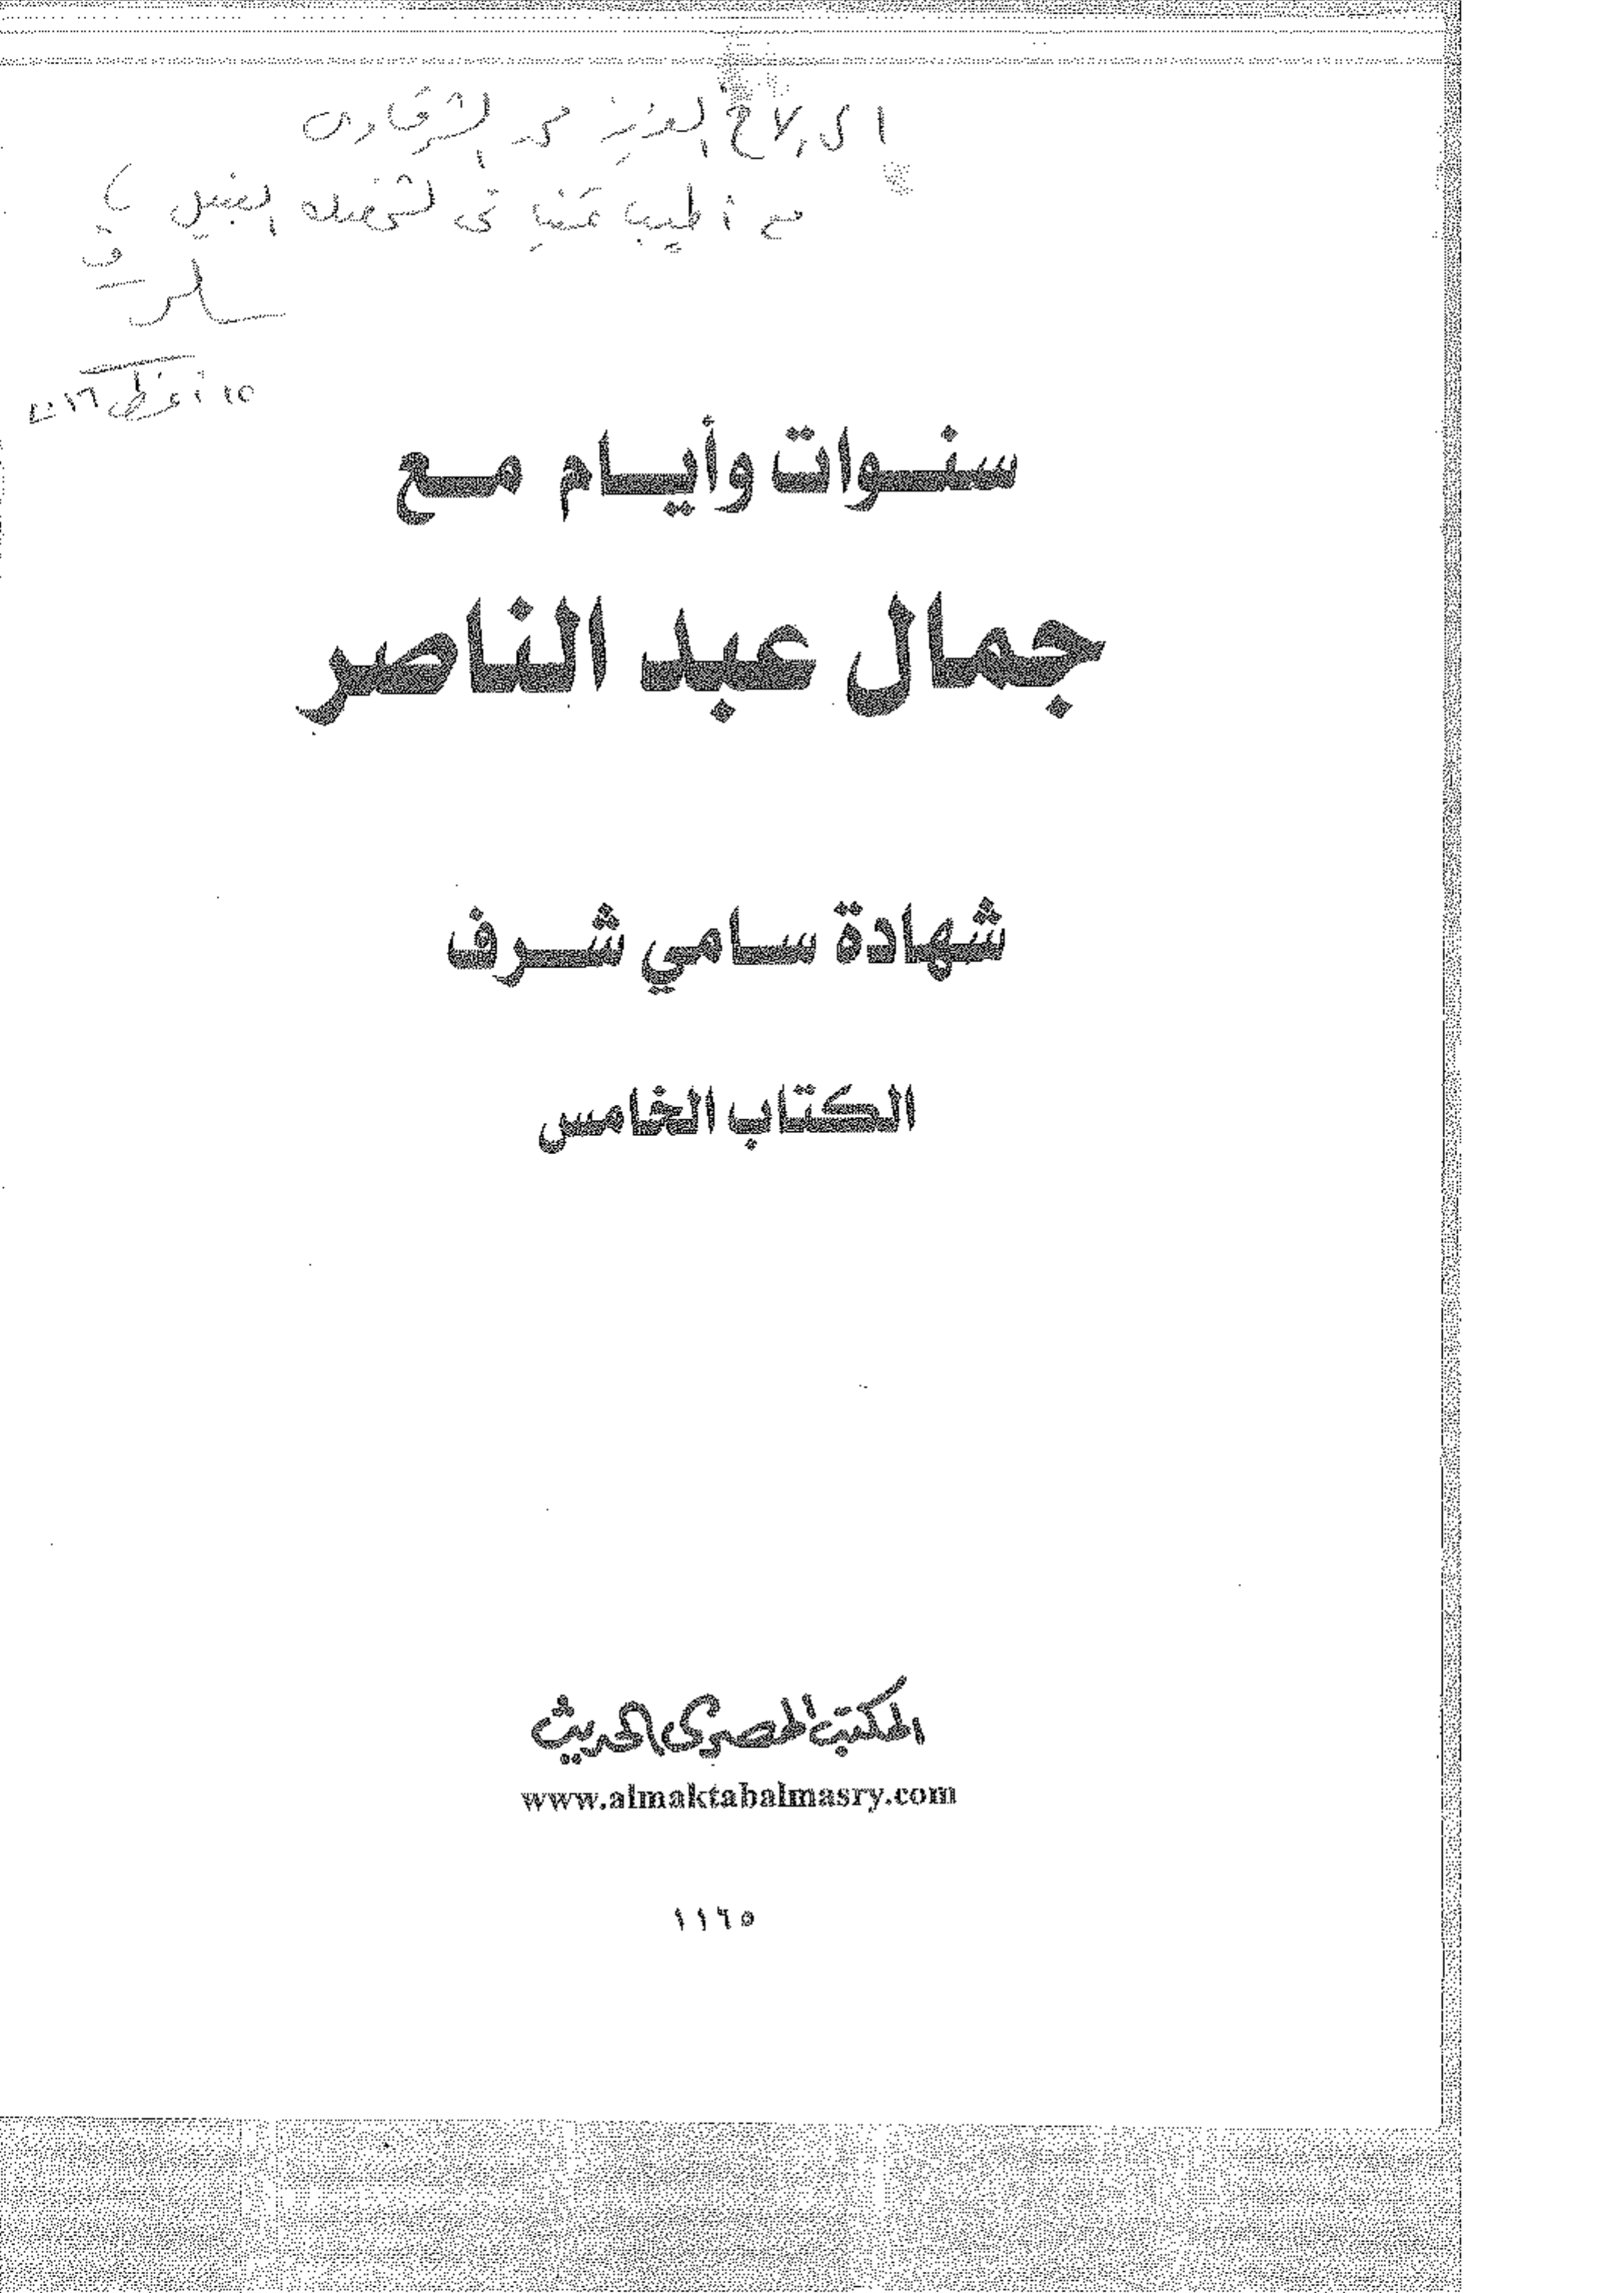 الى الأخ العزيز محمد الشرقاوى
مع أطيب تمنياتى لشخصك النبيل
١٥ أغسطس ٢٠١٦
سنوات وأيام مع
جمال عبد الناصر
شهادة سامي شرف
الكتاب الخامس
المكتب المصرى الحديث
www.almaktabalmasry.com
١١٦٥